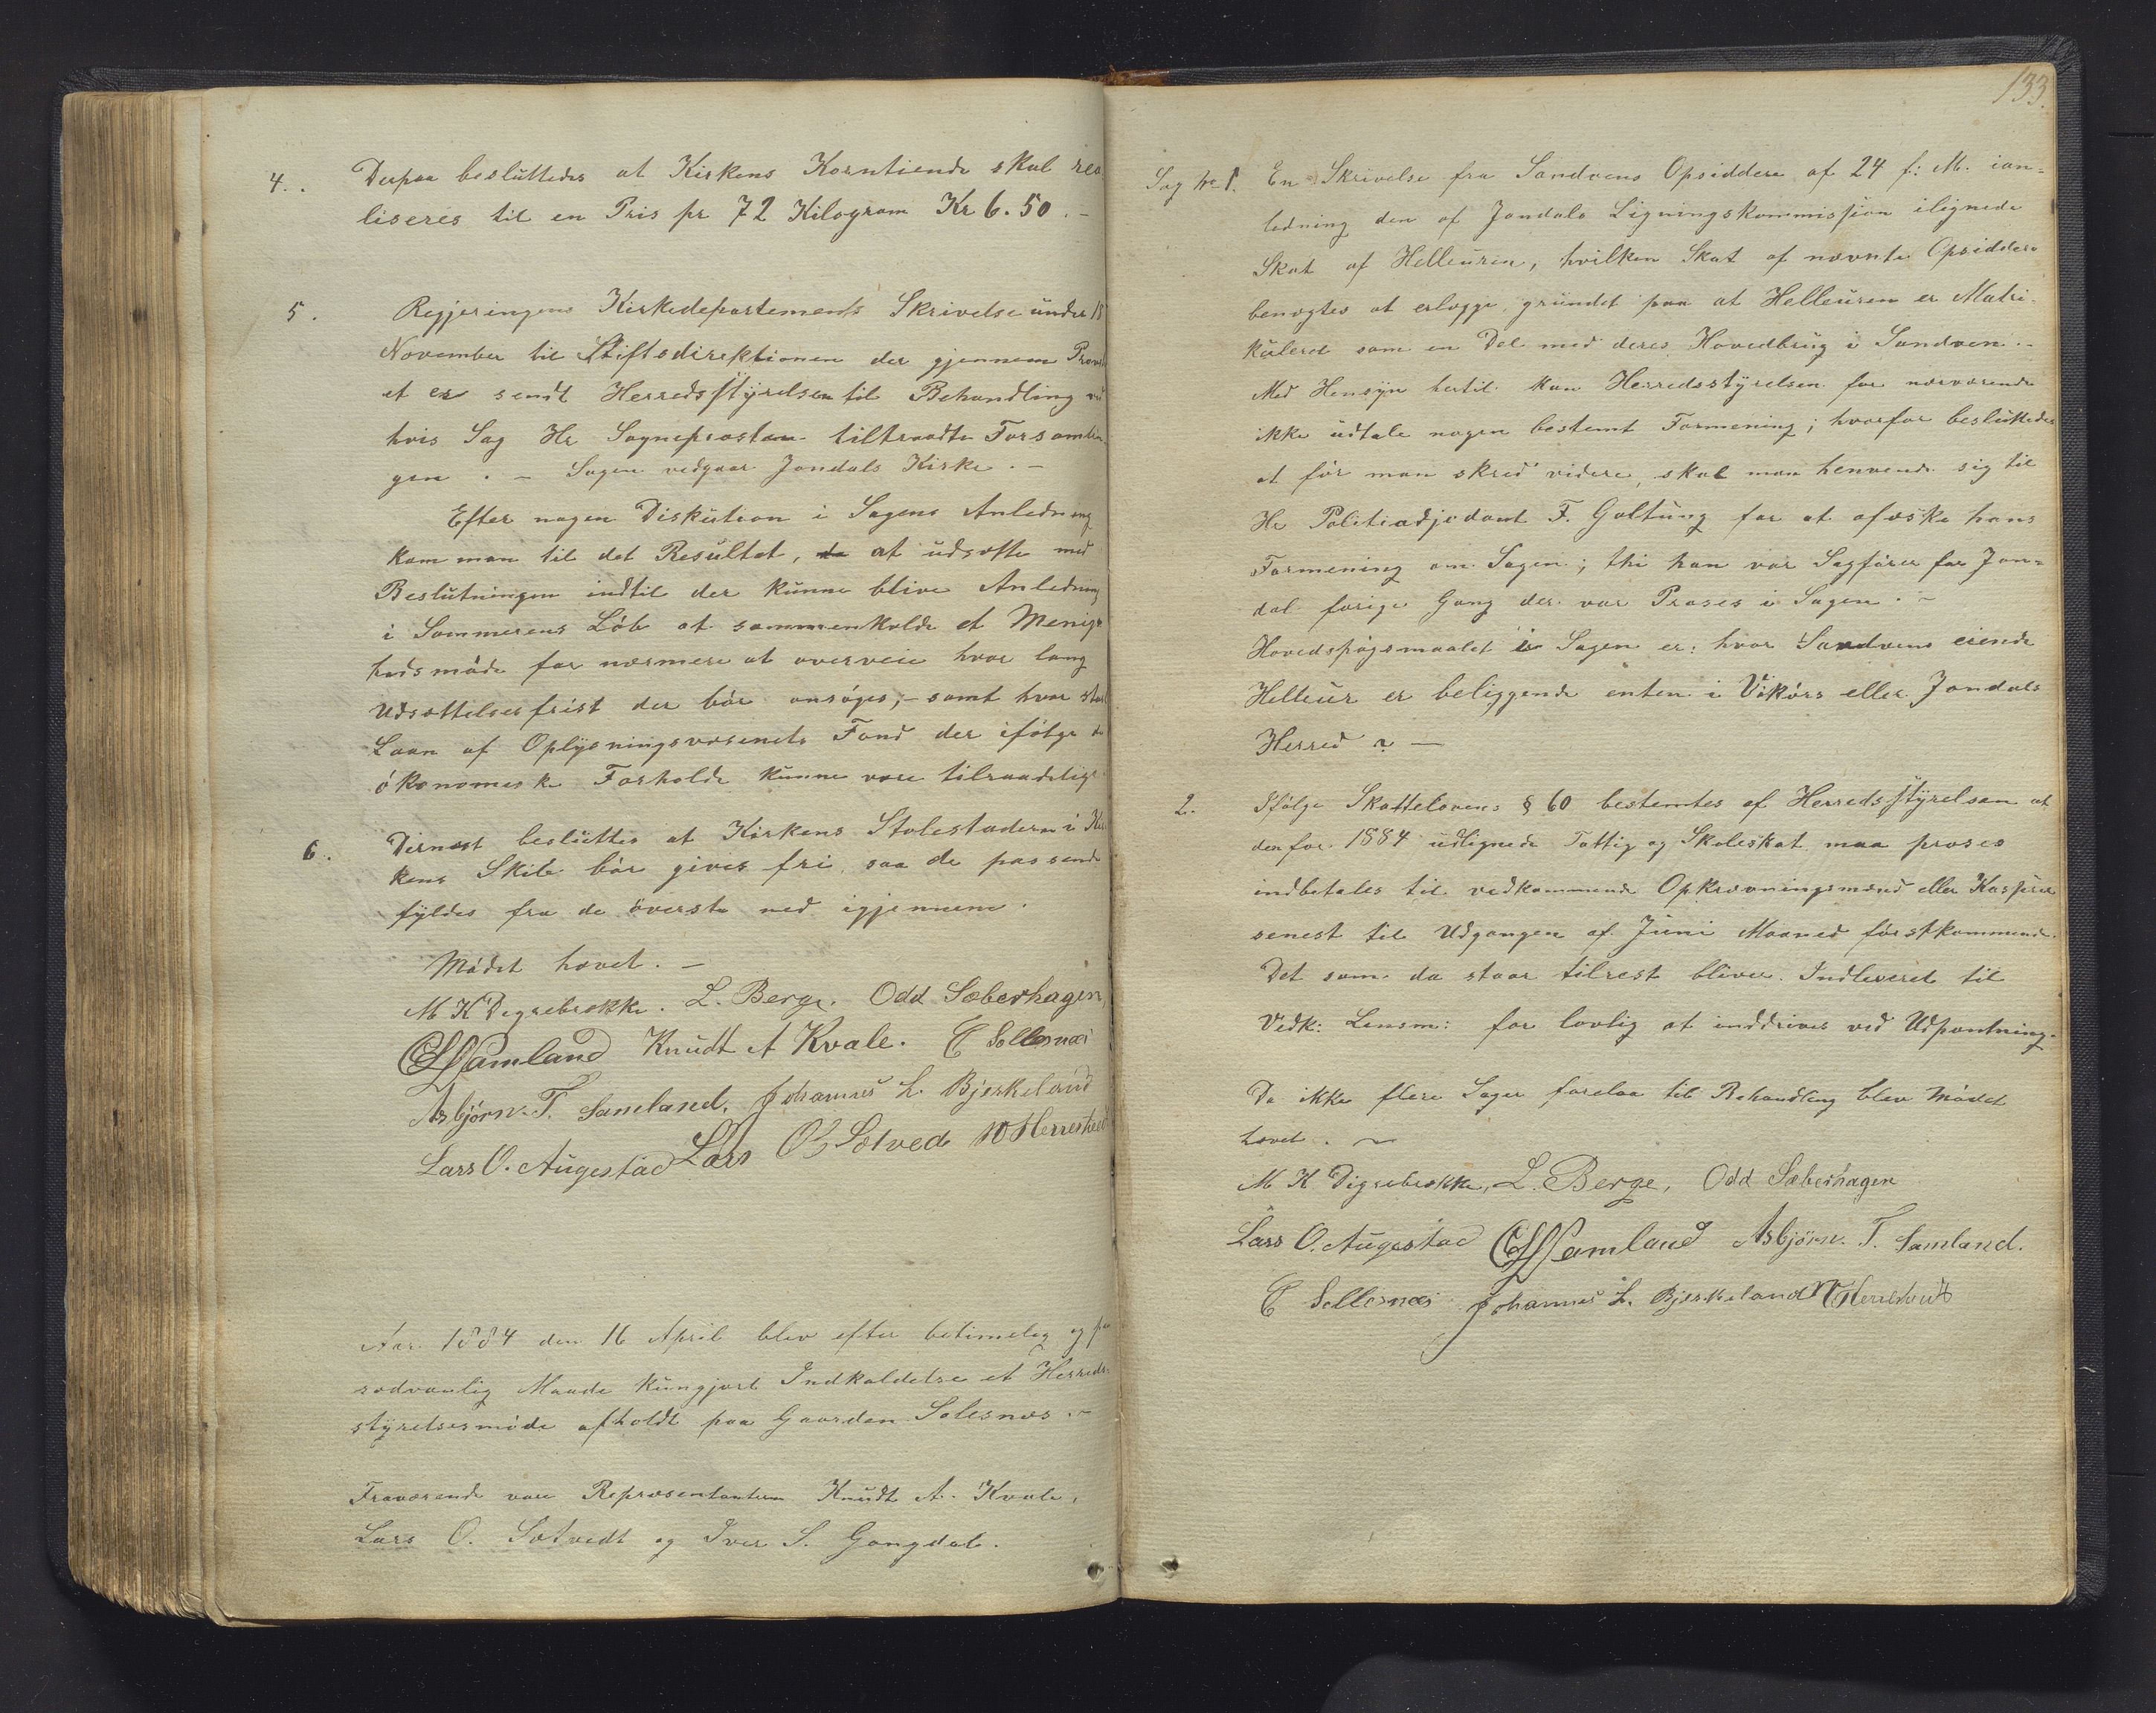 4. Derpaa besluttedes at Kirkens Korntiende skal rea
liseres til en Pris pr 72 Kilogram Kr 6.50.-
5. Regjeringens Kirkedepartements Skrivelse under 18
November til Stiftsdirektionen der gjennem Provst
et er sendt Herredsstyrelsen til Behandling ved
hvis Sag Hr Sogneprosten tiltraadte Forsamlin
gen. - Sagen vedgaar Jondals Kirke. -
Efter nogen Diskution i Sagens Anledning
kom man til det Resultat, da at udsætte med
Beslutningen indtil der kunne blive Anledning
i Sommerens Löb at sammenkolde et Menig
hedsmöde for nærmere at overveie hvor lang
Udsættelsesfrist der bör ansöges; - samt hvor stort
Laan af Oplysningsvæsenets Fond der ifölge de
ökonomiske Forholde kunne være tilraadelige
6. Dernæst besluttes at Kirkens Stolestadern i Kir
kens Skib bör gives fri, saa de passende
fyldes fra de överste ned igjennem.
Mödet hævet. -
M K Digrebrekke. L. Berge. Odd Sæberhagen,
Samland Knudt A Kvale. T Sollesnæs
Asbjörn. T. Samland, Johannes L. Bjerkeland
Lars O. Augestad Lars O Sætved Herrestved
Aar 1884 den 16 April blev efter betimelig og paa
sædvanlig Maade kungjort Indkaldelse et Herreds-
styrelsesmöde afholdt paa Gaarden Solesnæs. -
Fraværende vare Repræsentantern Knudt A. Kvale,
Lars O. Sætvedt og Iver S. Gangdal.
133.
Sag No 1. En Skrivelse fra Sandvens Opsiddere af 24 f: M. ian=
ledning den af Jondals Ligningskommission ilignede
Skat af Helleuren, hvilken Skat af nævnte Opsiddere
benægtes at erlægge, grundet paa at Helleuren er Matri-
kuleret som en Del med deres Hovedbrug i Sandven. -
Med Hensyn hertil kan Herredsstyrelsen for nærværende
ikke udtale nogen bestemt Formening; hvorfor besluttedes
at för man skred videre, skal man henvende sig til
Hr Politiadjudant F. Galtung for at afæske hans
Formening om Sagen; thi han var Sagförer for Jon=
dal forige Gang der var Proses i Sagen. -
Hovedspögsmaalet i Sagen er: hvor Sandvens eiende
Helleur er beliggende enten i Vikörs eller Jondals
Herred ? -
2. Ifölge Skattelovens § 60 bestemtes af Herredsstyrelsen at
den for 1884 udlignede Fattig og Skoleskat maa proses
indbetales til vedkommende Opkrævningsmænd eller Kasserer
senest til Udgangen af Juni Maaned förstkommende.
Det som da staar tilrest bliver Indleveret til
Vedk: Lensm: for lovlig at inddrives ved Udpantning.
Da ikke flere Sager forelaa til Behandling blev Mödet
hævet. ~
M K Digrebrekke, L. Berge, Odd Sæberhagen
Lars O. Augestad Samland Asbjörn. T. Samland.
T Sollesnæs Johannes L. Bjerkeland Herrestvedt